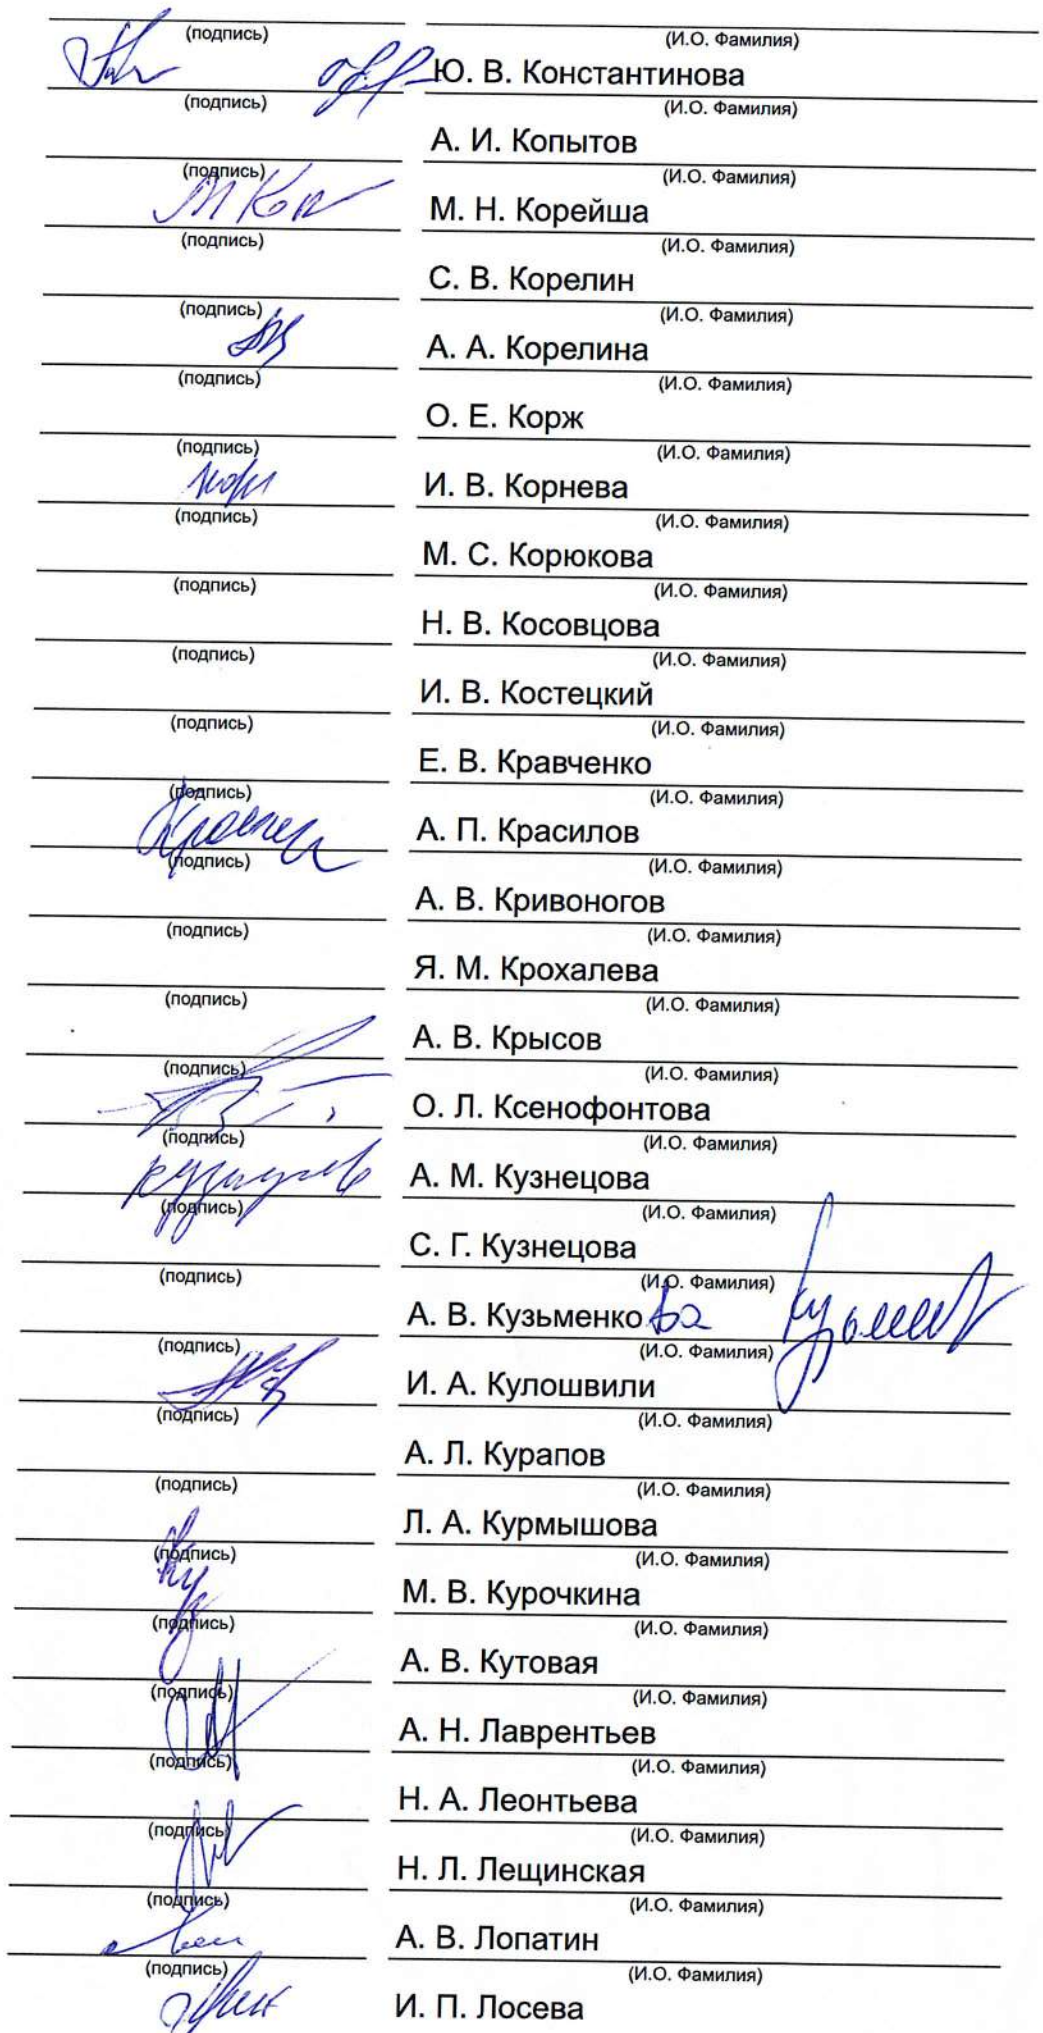 (подпись) (И.О. Фамилия)
Ю. В. Константинова
(подпись) (И.О. Фамилия)
А. И. Копытов
(подпись) (И.О. Фамилия)
М. Н. Корейша
(подпись) (И.О. Фамилия)
С. В. Корелин
(подпись) (И.О. Фамилия)
А. А. Корелина
(подпись) (И.О. Фамилия)
О. Е. Корж
(подпись) (И.О. Фамилия)
И. В. Корнева
(подпись) (И.О. Фамилия)
М. С. Корюкова
(подпись) (И.О. Фамилия)
Н. В. Косовцова
(подпись) (И.О. Фамилия)
И. В. Костецкий
(подпись) (И.О. Фамилия)
Е. В. Кравченко
(подпись) (И.О. Фамилия)
А. П. Красилов
(подпись) (И.О. Фамилия)
А. В. Кривоногов
(подпись) (И.О. Фамилия)
Я. М. Крохалева
(подпись) (И.О. Фамилия)
А. В. Крысов
(подпись) (И.О. Фамилия)
О. Л. Ксенофонтова
(подпись) (И.О. Фамилия)
А. М. Кузнецова
(подпись) (И.О. Фамилия)
С. Г. Кузнецова
(подпись) (И.О. Фамилия)
А. В. Кузьменкова
(подпись) (И.О. Фамилия)
И. А. Кулошвили
(подпись) (И.О. Фамилия)
А. Л. Курапов
(подпись) (И.О. Фамилия)
Л. А. Курмышова
(подпись) (И.О. Фамилия)
М. В. Курочкина
(подпись) (И.О. Фамилия)
А. В. Кутовая
(подпись) (И.О. Фамилия)
А. Н. Лаврентьев
(подпись) (И.О. Фамилия)
Н. А. Леонтьева
(подпись) (И.О. Фамилия)
Н. Л. Лещинская
(подпись) (И.О. Фамилия)
А. В. Лопатин
(подпись) (И.О. Фамилия)
И. П. Лосева